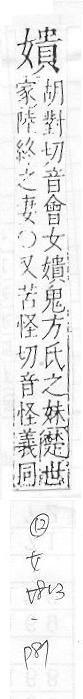 嬇
胡對切音會女嬇鬼方氏之妹楚世
家陸終之妻〇又苦怪切音怪義同
⑫
女